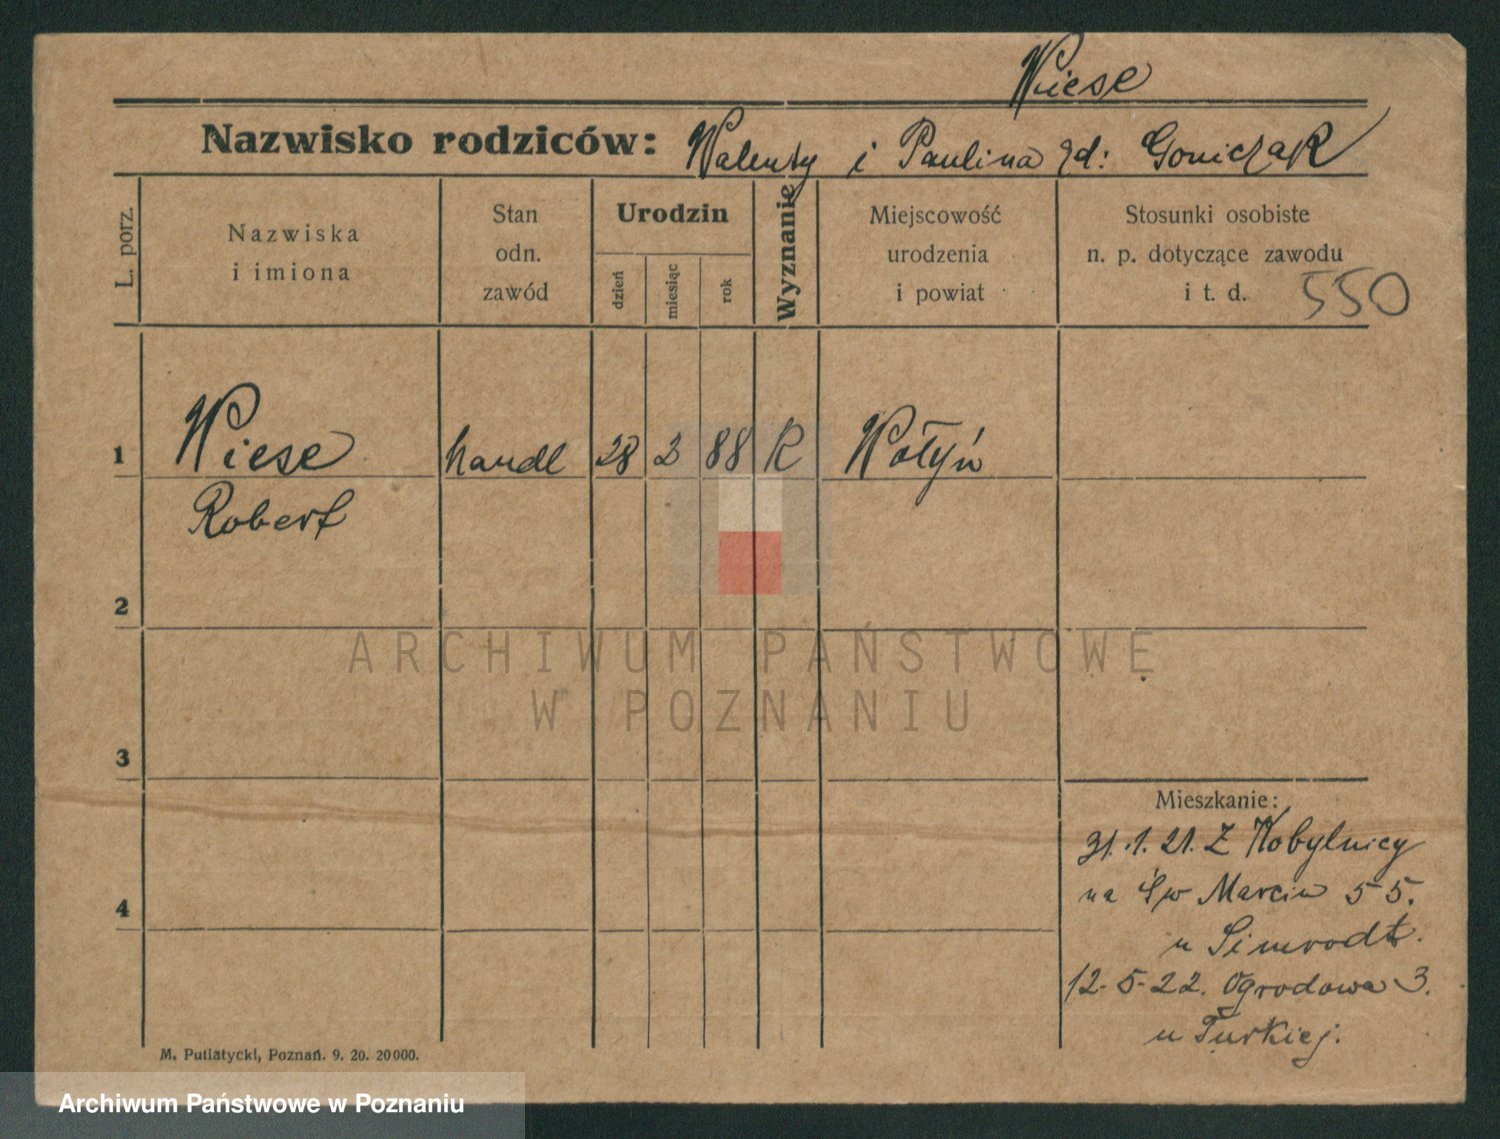 Wiese
Nazwisko rodziców: Walenty i Paulina zd: Goniczak
L. porz.
Nazwiska
i imiona
Stan
odn.
zawód
Urodzin
dzień
miesiąc
rok
Wyznanie
Miejscowość
urodzenia
i powiat
Stosunki osobiste
n. p. dotyczące zawodu
i t. d. 550
1 Wiese handl 28 2 88 R Wołyń
Robert
2
3
4
Mieszkanie:
31.1.21. Z Kobylnicy
na Św Marcin 55.
u Simrodt.
12-5-22. Ogrodowa 3.
u Turkiej.
M. Putiatycki, Poznań. 9. 20. 20000.
ARCHIWUM PAŃSTWOWE
W POZNANIU
Archiwum Państwowe w Poznaniu